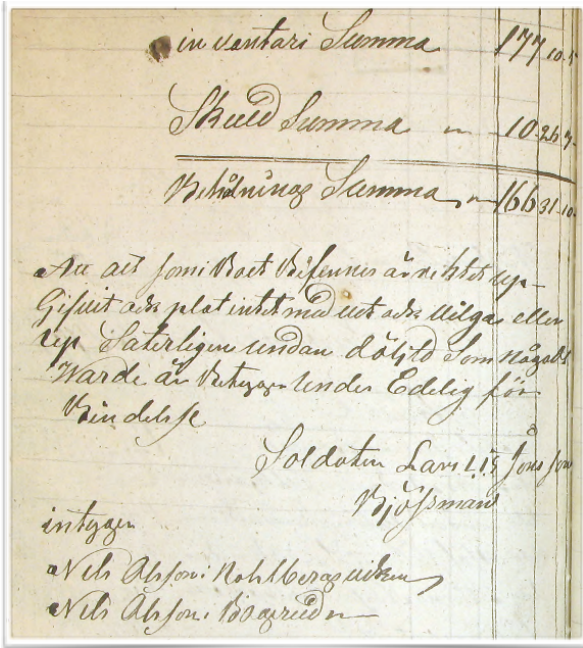 inventari Summa 177 10.5
Skuld Summa 10.26.7
Behålnings Summa 166 31.10
Att alt som i Boet Befinnes är rihtet up-
Gifuit och plat intet med vet och vilga eller
up Såterligen undan döljtd Som någodt
Warde är Betygar under Edelig för
Bindelse
Soldaten Lars L.I.S Jönsson
Björsman
intygen
Nils Olsson i Kohlbergsviken
Nils Olsson i